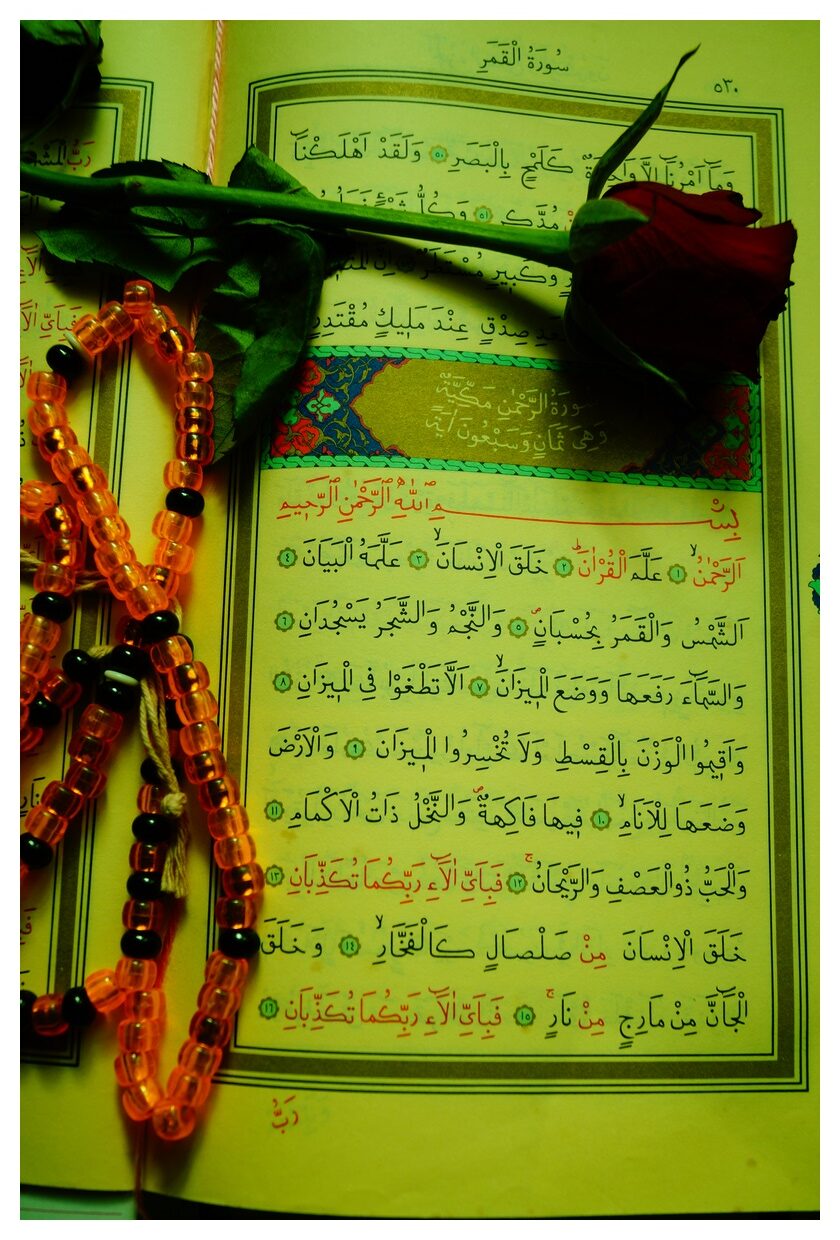 سُورَةُ الْقَمَرِ
٥٣٠
وَمَٓا اَمْرُنَٓا اِلَّا وَاحِدَةٌ كَلَمْحٍ بِالْبَصَرِ ٥٠ وَلَقَدْ اَهْلَكْنَٓا
مُدَّكِرٍ ٥١ وَكُلُّ شَيْءٍ
وَكَبِيرٍ مُسْتَطَرٌ ٥٣ اِنَّ
صِدْقٍ عِنْدَ مَلِيكٍ مُقْتَدِرٍ
سُورَةُ الرَّحْمٰنِ مَكِّيَّةٌ
وَهِىَ ثَمَانٍ وَسَبْعُونَ اٰيَةً
بِسْمِ اللّٰهِ الرَّحْمٰنِ الرَّحِيمِ
اَلرَّحْمٰنُ ١ عَلَّمَ الْقُرْاٰنَ ٢ خَلَقَ الْاِنْسَانَ ٣ عَلَّمَهُ الْبَيَانَ ٤
اَلشَّمْسُ وَالْقَمَرُ بِحُسْبَانٍ ٥ وَالنَّجْمُ وَالشَّجَرُ يَسْجُدَانِ ٦
وَالسَّمَٓاءَ رَفَعَهَا وَوَضَعَ الْمِيزَانَ ٧ اَلَّا تَطْغَوْا فِى الْمِيزَانِ ٨
وَاَقِيمُوا الْوَزْنَ بِالْقِسْطِ وَلَا تُخْسِرُوا الْمِيزَانَ ٩ وَالْاَرْضَ
وَضَعَهَا لِلْاَنَامِ ١٠ فِيهَا فَاكِهَةٌ وَالنَّخْلُ ذَاتُ الْاَكْمَامِ ١١
وَالْحَبُّ ذُو الْعَصْفِ وَالرَّيْحَانُ ١٢ فَبِاَىِّ اٰلَٓاءِ رَبِّكُمَا تُكَذِّبَانِ ١٣
خَلَقَ الْاِنْسَانَ مِنْ صَلْصَالٍ كَالْفَخَّارِ ١٤ وَخَلَقَ
الْجَٓانَّ مِنْ مَارِجٍ مِنْ نَارٍ ١٥ فَبِاَىِّ اٰلَٓاءِ رَبِّكُمَا تُكَذِّبَانِ ١٦
رَبُّ